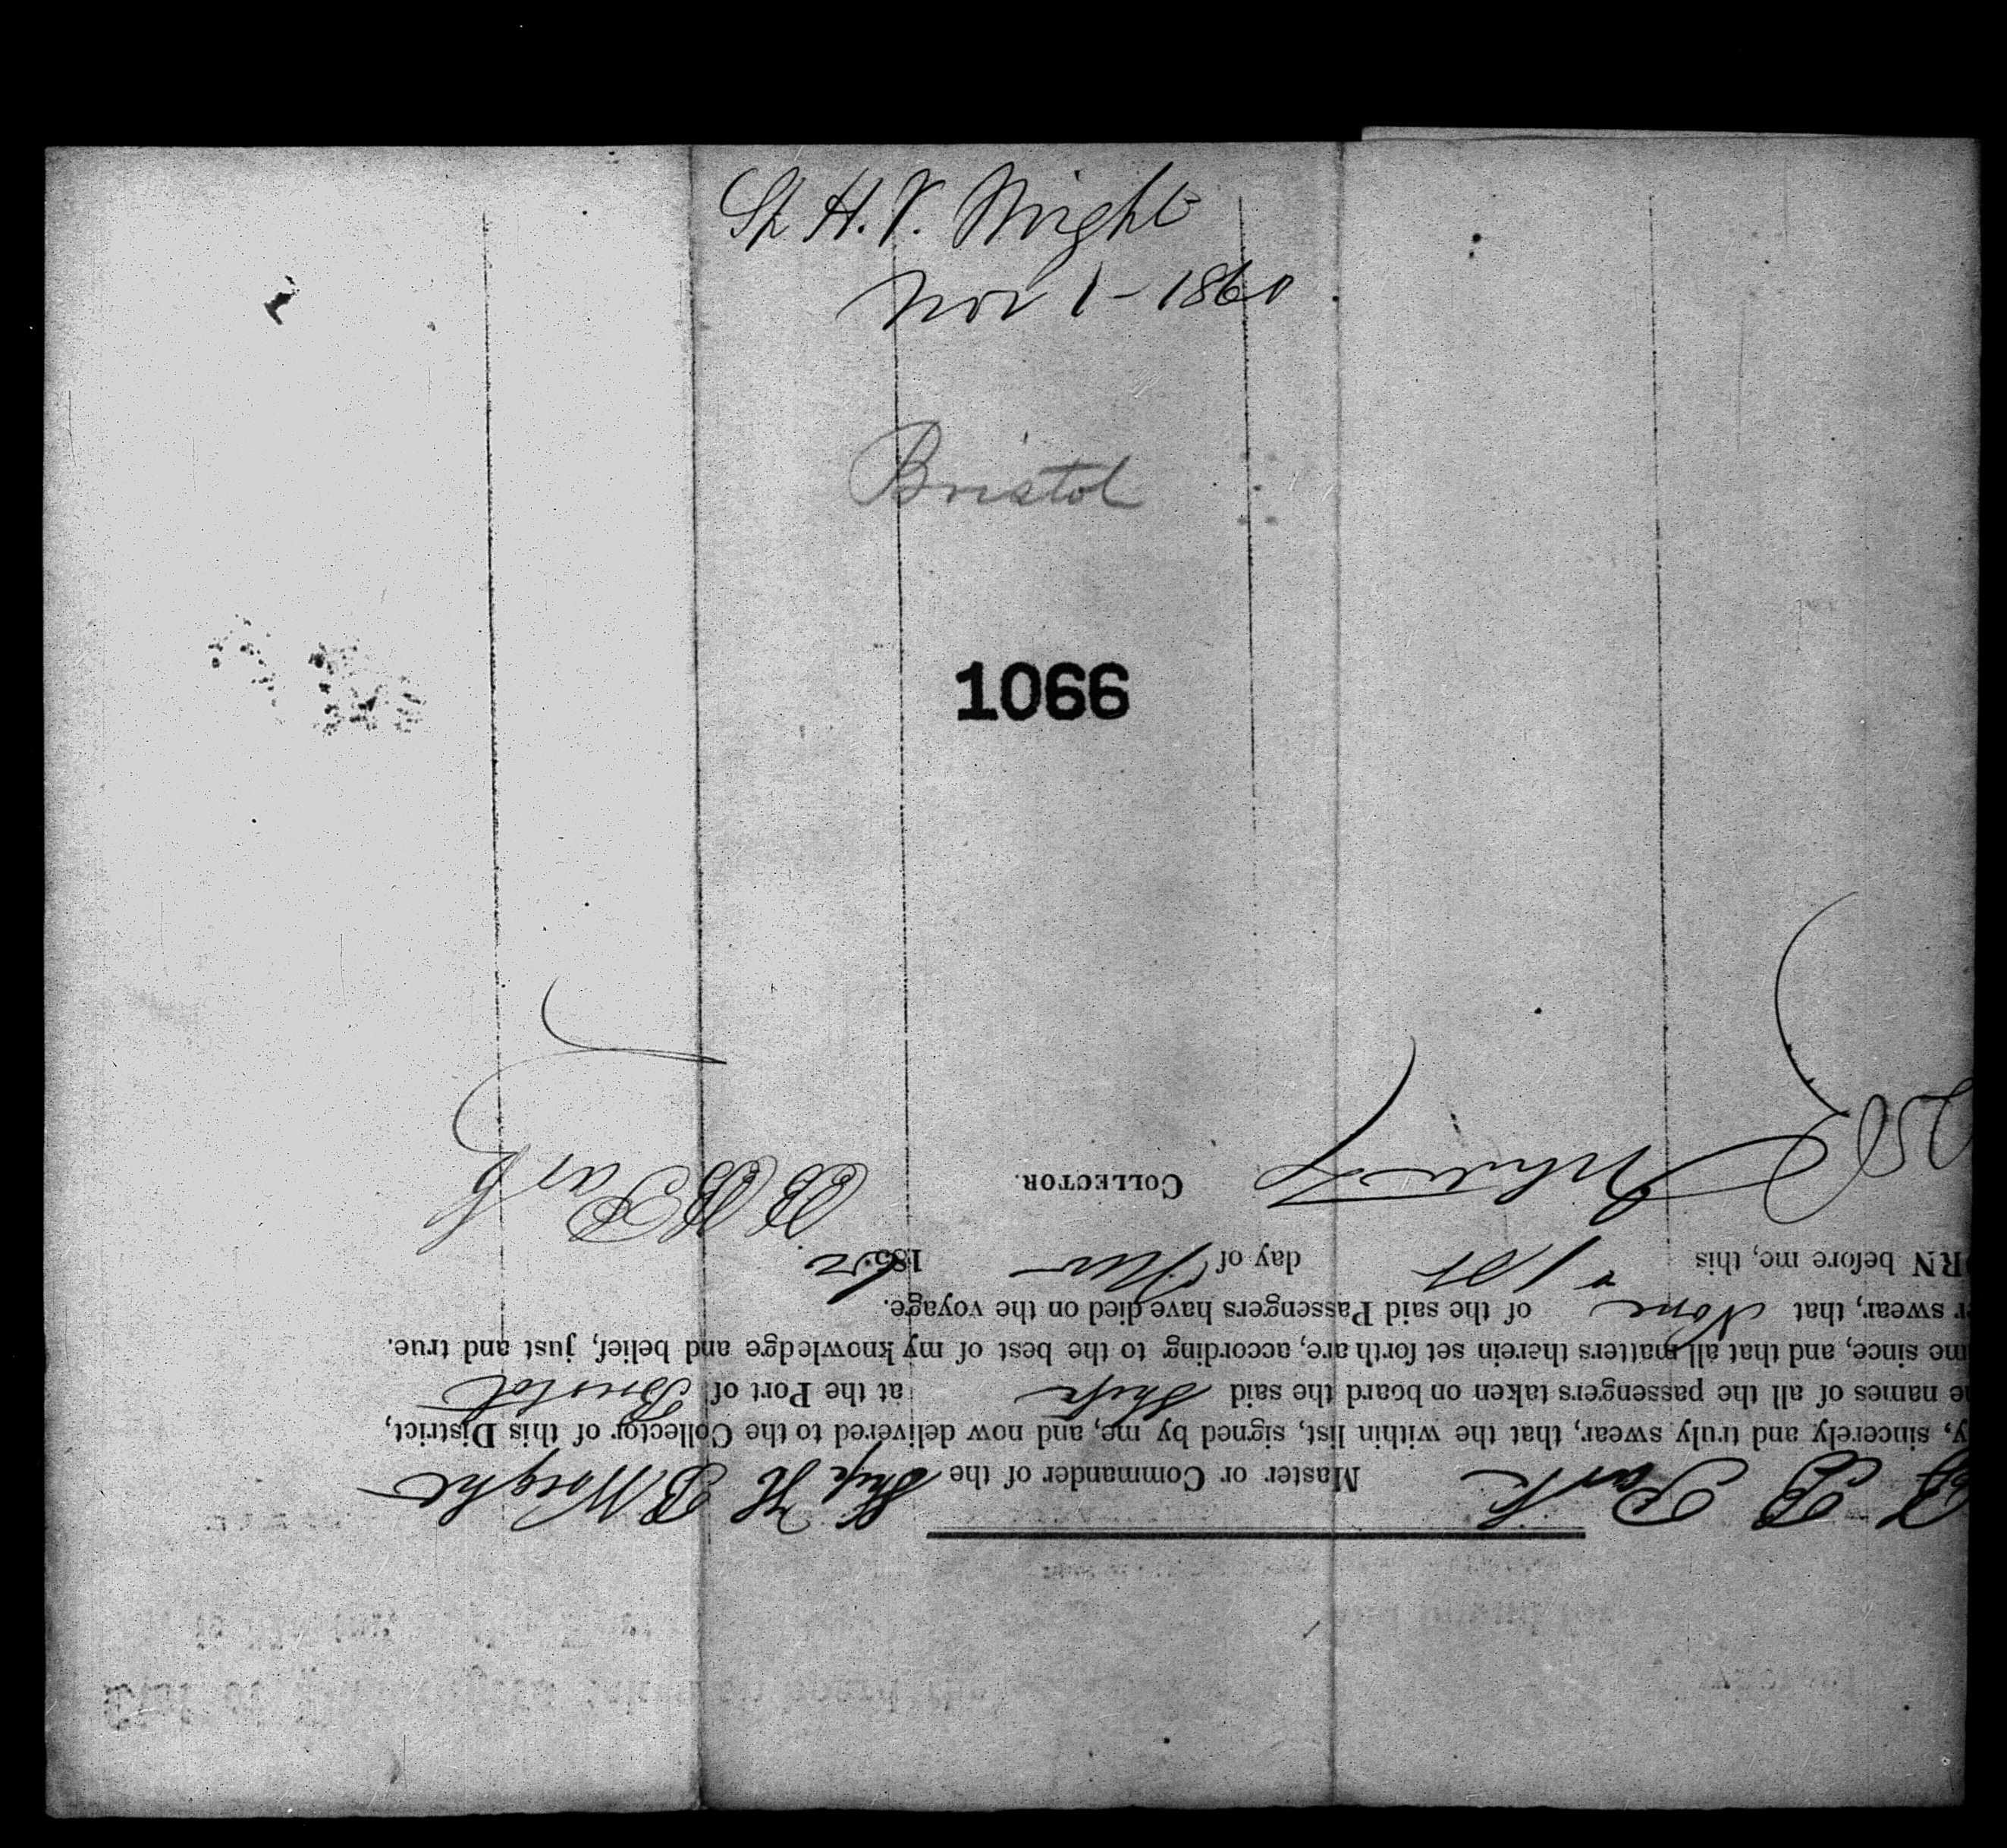 Sh H. V. Wright
Nov 1 - 1860
Bristol
1066
B B Park Master or Commander of the Ship H B Wright
y, sincerely and truly swear, that the within list, signed by me, and now delivered to the Collector of this District,
e names of all the passengers taken on board the said Ship at the Port of Bristol
me since, and that all matters therein set forth are, according to the best of my knowledge and belief, just and true.
er swear, that None of the said Passengers have died on the voyage.
ORN before me, this 1st day of Nov 1860
COLLECTOR.
B B Park